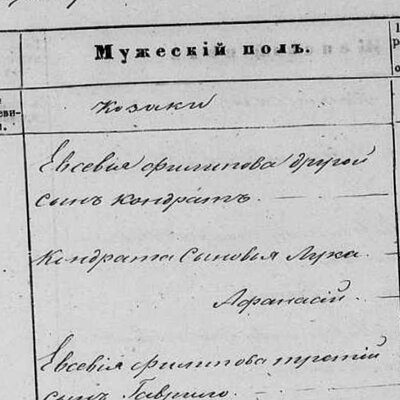 Мужескій полъ.
еви-
козаки
Евсевія филипова другой
сынъ Кондратъ.
Кондрата сыновья Лука.
Афанасій.
Евсевія филипова третій
сынъ Гаврило.